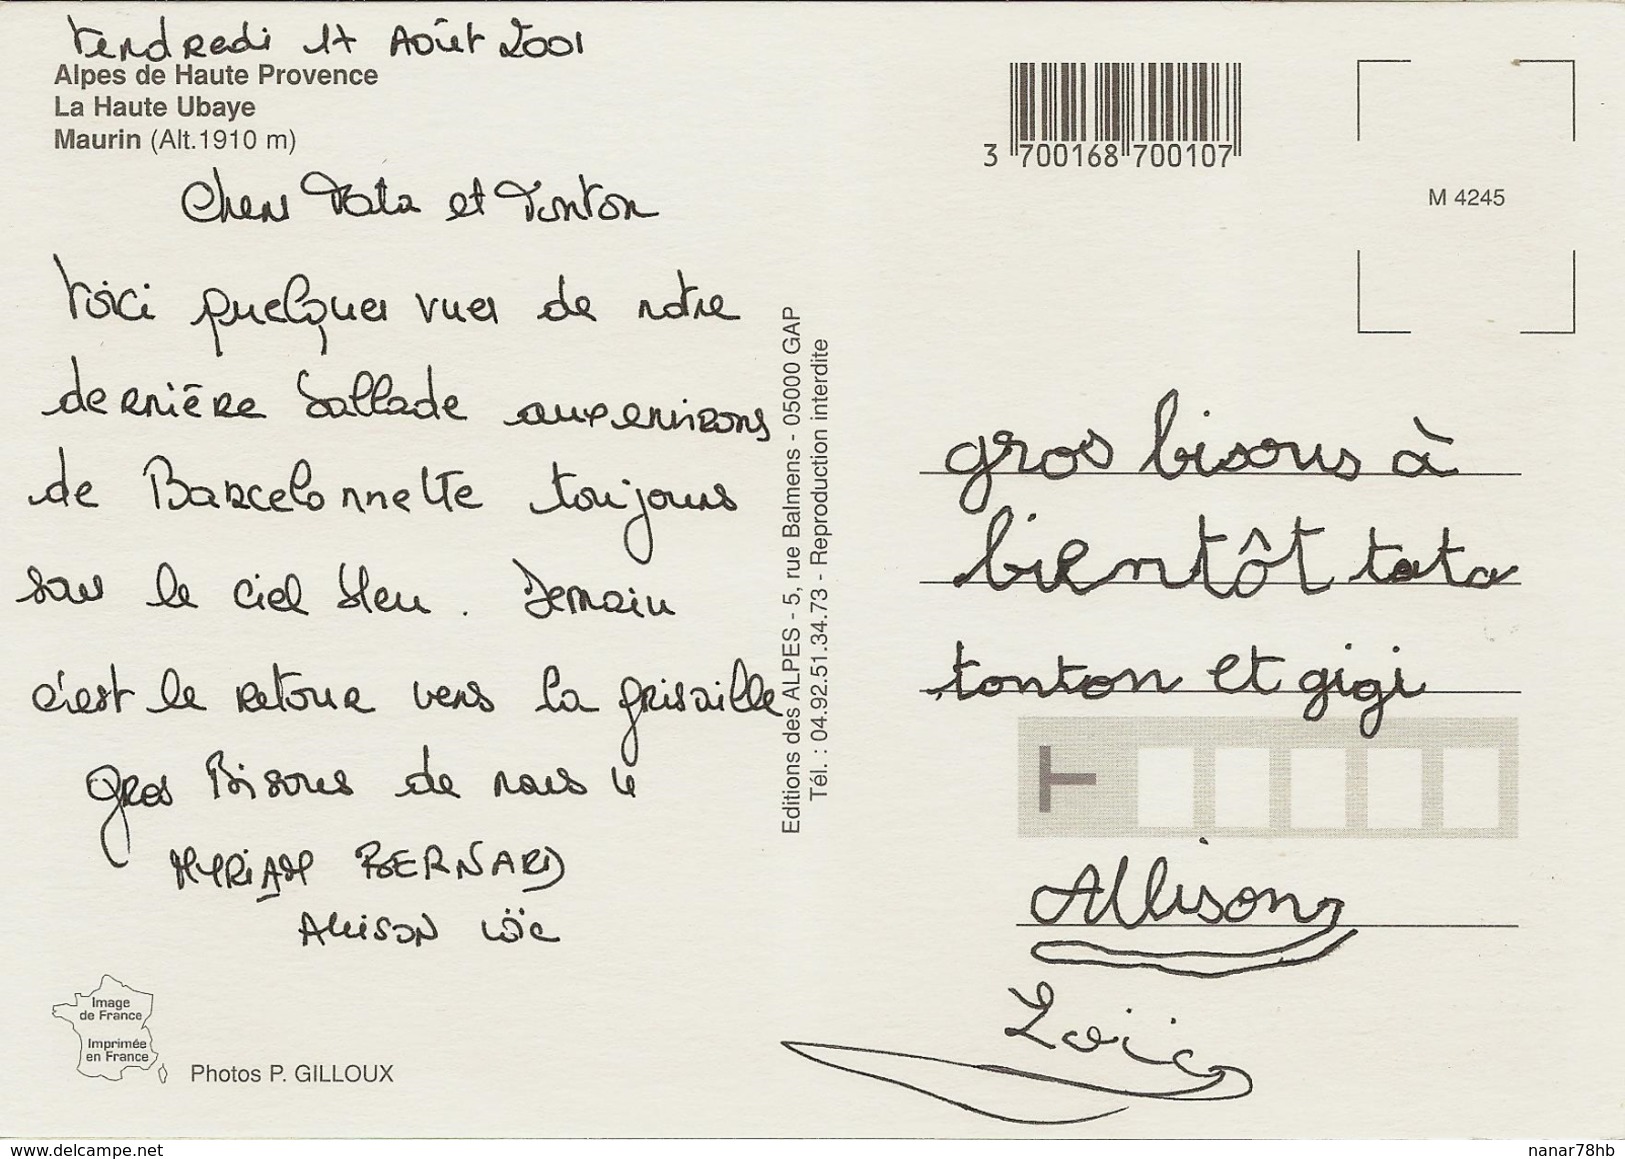 Vendredi 17 Août 2001
Alpes de Haute Provence
La Haute Ubaye
Maurin (Alt.1910 m)
Chers Tata et Tonton
Voici quelques vues de notre
dernière ballade aux environs
de Barcelonnette toujours
sous le ciel bleu. Demain
c'est le retour vers la grisaille
Gros Bisous de nous 4
MYRIAM BERNARD
ALLISON LOÏC
Image
de France
Imprimée
en France
Photos P. GILLOUX
Editions des ALPES - 5, rue Balmens - 05000 GAP
Tél. : 04.92.51.34.73 - Reproduction interdite
3 700168 700107
M 4245
gros bisous à
bientôt tata
tonton et gigi
T
Allison
Loïc
www.delcampe.net
nanar78hb